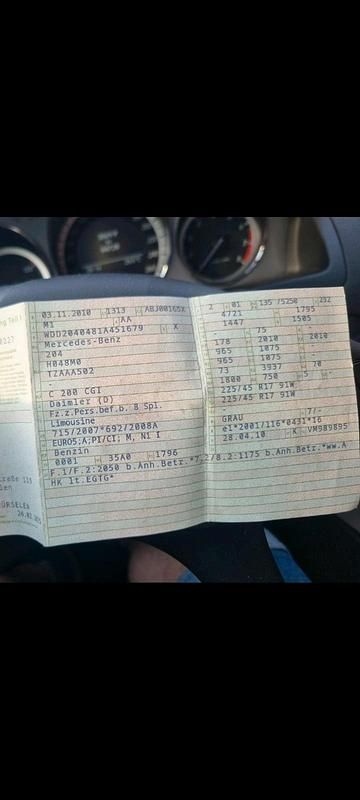 03.11.2010 1313 ABJ00165X
M1 AA
WDD2040481A451679 X
Mercedes-Benz
204
H048M0
TZAAA502
C 200 CGI
Daimler (D)
Fz.z.Pers.bef.b. 8 Spl.
Limousine
715/2007*692/2008A
EURO5;A;PI/CI; M, N1 I
Benzin
0001 35A0 1796
F.1/F.2:2050 b.Anh.Betr.*7.2/8.2:1175 b.Anh.Betr.*ww.A
HK lt.EGTG*
2 01 135 /5250 252
4721 1795
1447 1505
- 75 -
178 2010 2010
965 1075 -
965 1075 -
73 3937 70
1800 750 5 -
225/45 R17 91W
225/45 R17 91W
GRAU 7/-
e1*2001/116*0431*16
28.04.10 K VM989895
ng Teil I
0327
raße 115
len
ÜRSELEN